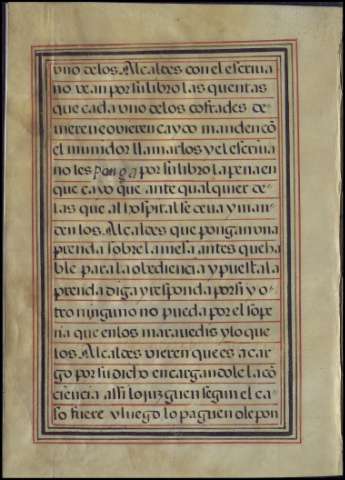 vno delos Alcaldes con el escriua
no vean por su libro las quentas
que cada vno delos cofrades de
uiere ne ovieren caydo manden cõ
el muñidor llamarlos y el escriua
no les ponga por su libro la pena en
que cayo que ante qualquier de
las que al hospital se deua y man
den los Alcaldes que pongan vna
prenda sobre la mesa antes que ha
ble para la obediencia y puesta la
prenda diga y responda por si y o
tro ninguno no pueda por el so pe
na que en los marauedis y lo que
los Alcaldes vieren que es a car
go por su dicho encargandole la cõ
ciencia assi lo juzguen segun el ca
so fuere y luego lo paguen o le pon